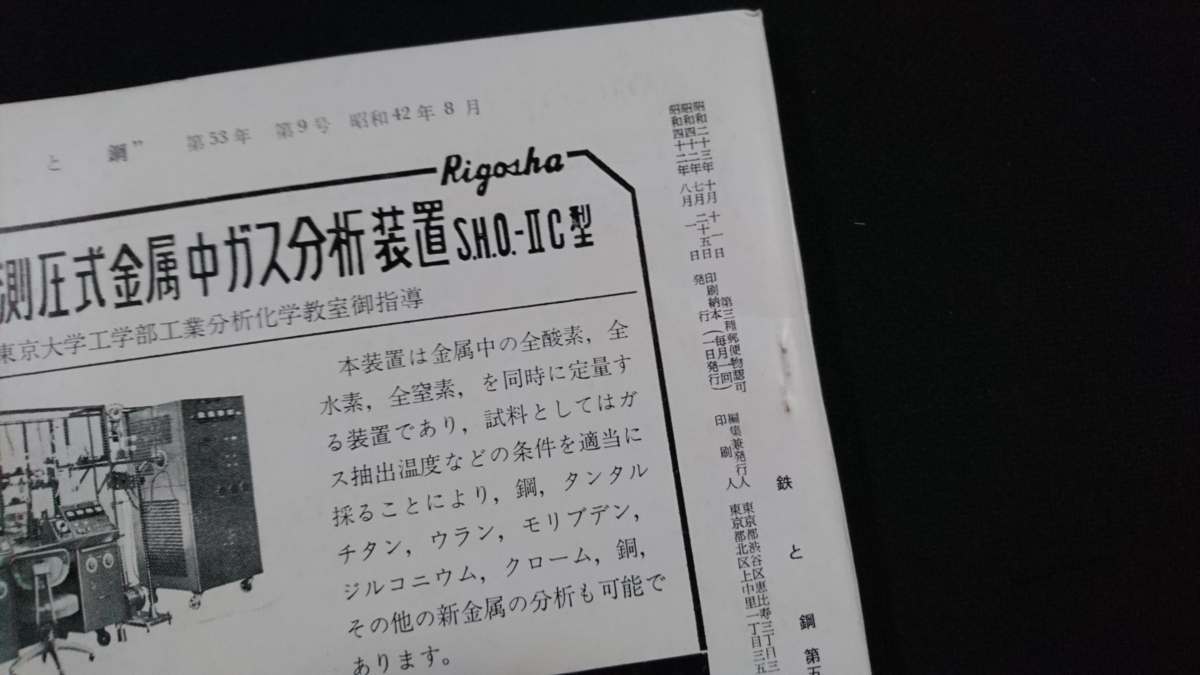 と 鋼” 第53年 第9号 昭和42年8月
Rigosha
測圧式金属中ガス分析装置S.H.O.-ⅡC型
東京大学工学部工業分析化学教室御指導
本装置は金属中の全酸素，全
水素，全窒素，を同時に定量す
る装置であり，試料としてはガ
ス抽出温度などの条件を適当に
採ることにより，鋼，タンタル
チタン，ウラン，モリブデン，
ジルコニウム，クローム，銅，
その他の新金属の分析も可能で
あります。
昭和二十三年十月十一日 第三種郵便物認可
昭和四十二年七月二十五日 印刷納本（毎月一回
昭和四十二年八月一日 発行 一日発行）
編集兼発行人 東京都渋谷区恵比寿三丁目三
印刷人 東京都北区上中里一丁目三五
鉄と鋼 第五